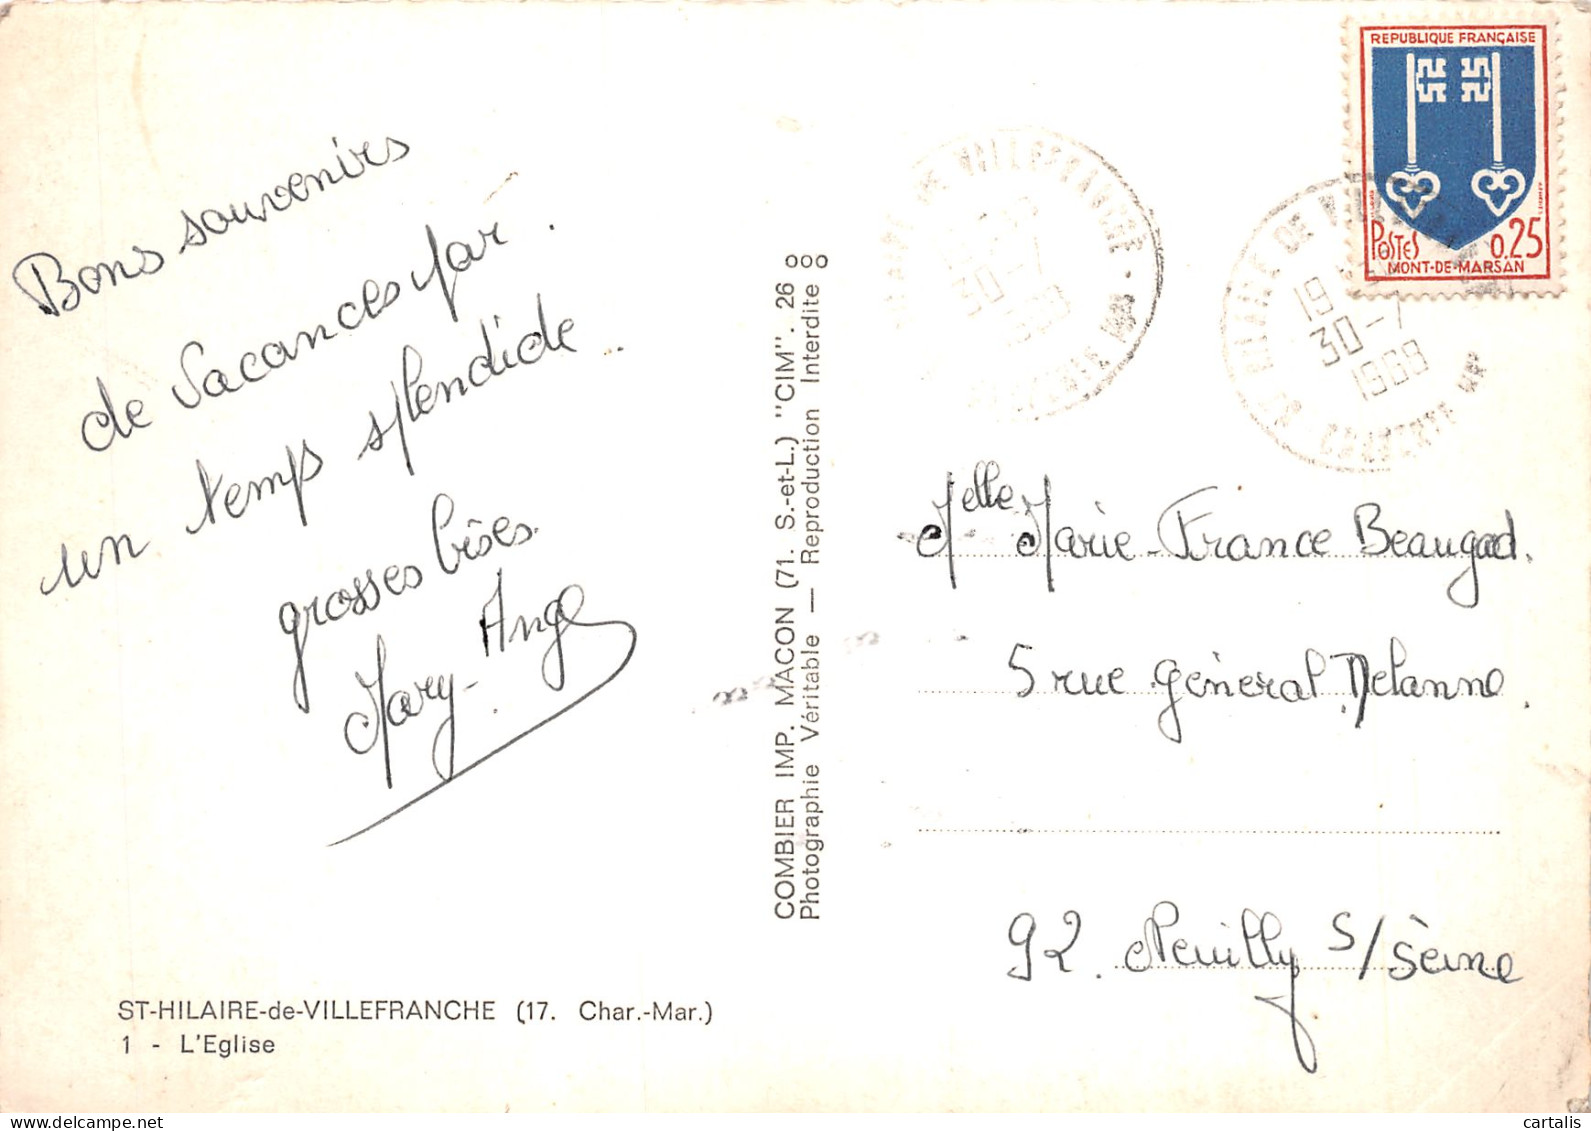 Bons souvenirs
de vacances par
un temps splendide.
grosses bises.
Mary-Ange
ST-HILAIRE-de-VILLEFRANCHE (17. Char.-Mar.)
1 - L'Eglise
COMBIER IMP. MACON (71. S.-et-L.) "CIM". 26
Photographie Véritable — Reproduction Interdite
REPUBLIQUE FRANÇAISE
POSTES 0.25
MONT-DE-MARSAN
30-7
1968
30-7
1968
Melle Marie-France Beaugad.
5 rue général Delanne.
92. Neuilly s/Seine
cartalis